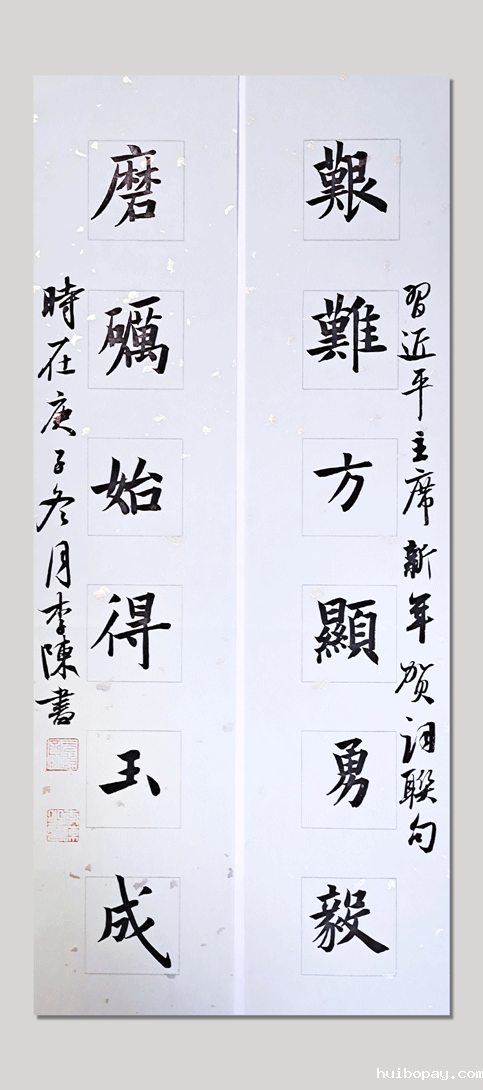 習近平主席新年贺词聯句
艱難方顯勇毅
磨礪始得玉成
時在庚子冬月李陳書
huibopay.com